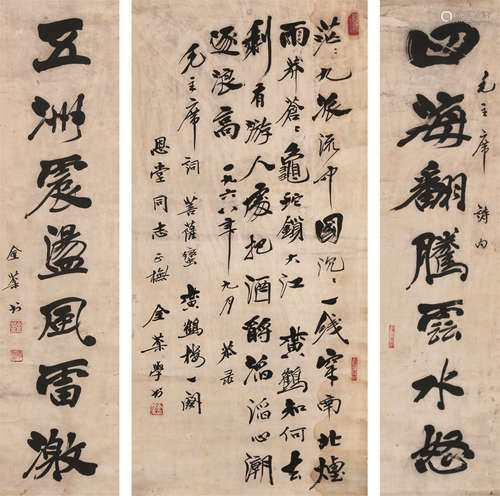 四海翻騰雲水怒
毛主席詩句
茫々九派流中國沉々一綫穿南北煙
雨莽蒼々龜蛇鎖大江黄鶴知何去
剩有游人處把酒酹滔滔心潮
逐浪高 一九六八年九月 恭录
毛主席詞 菩薩蠻 黄鶴樓一阕
恩堂同志正撫 金葉學书
五洲震盪風雷激
金葉书